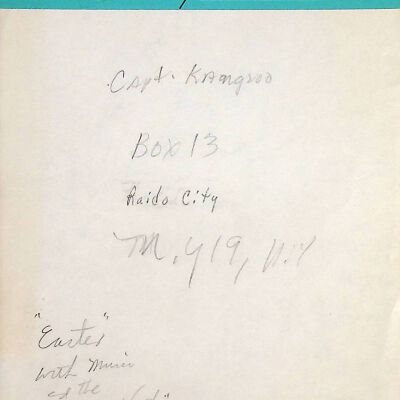 Capt. Kangroo
Box 13
Raido City
N.Y 19, N.Y
"Easter"
with Music
the